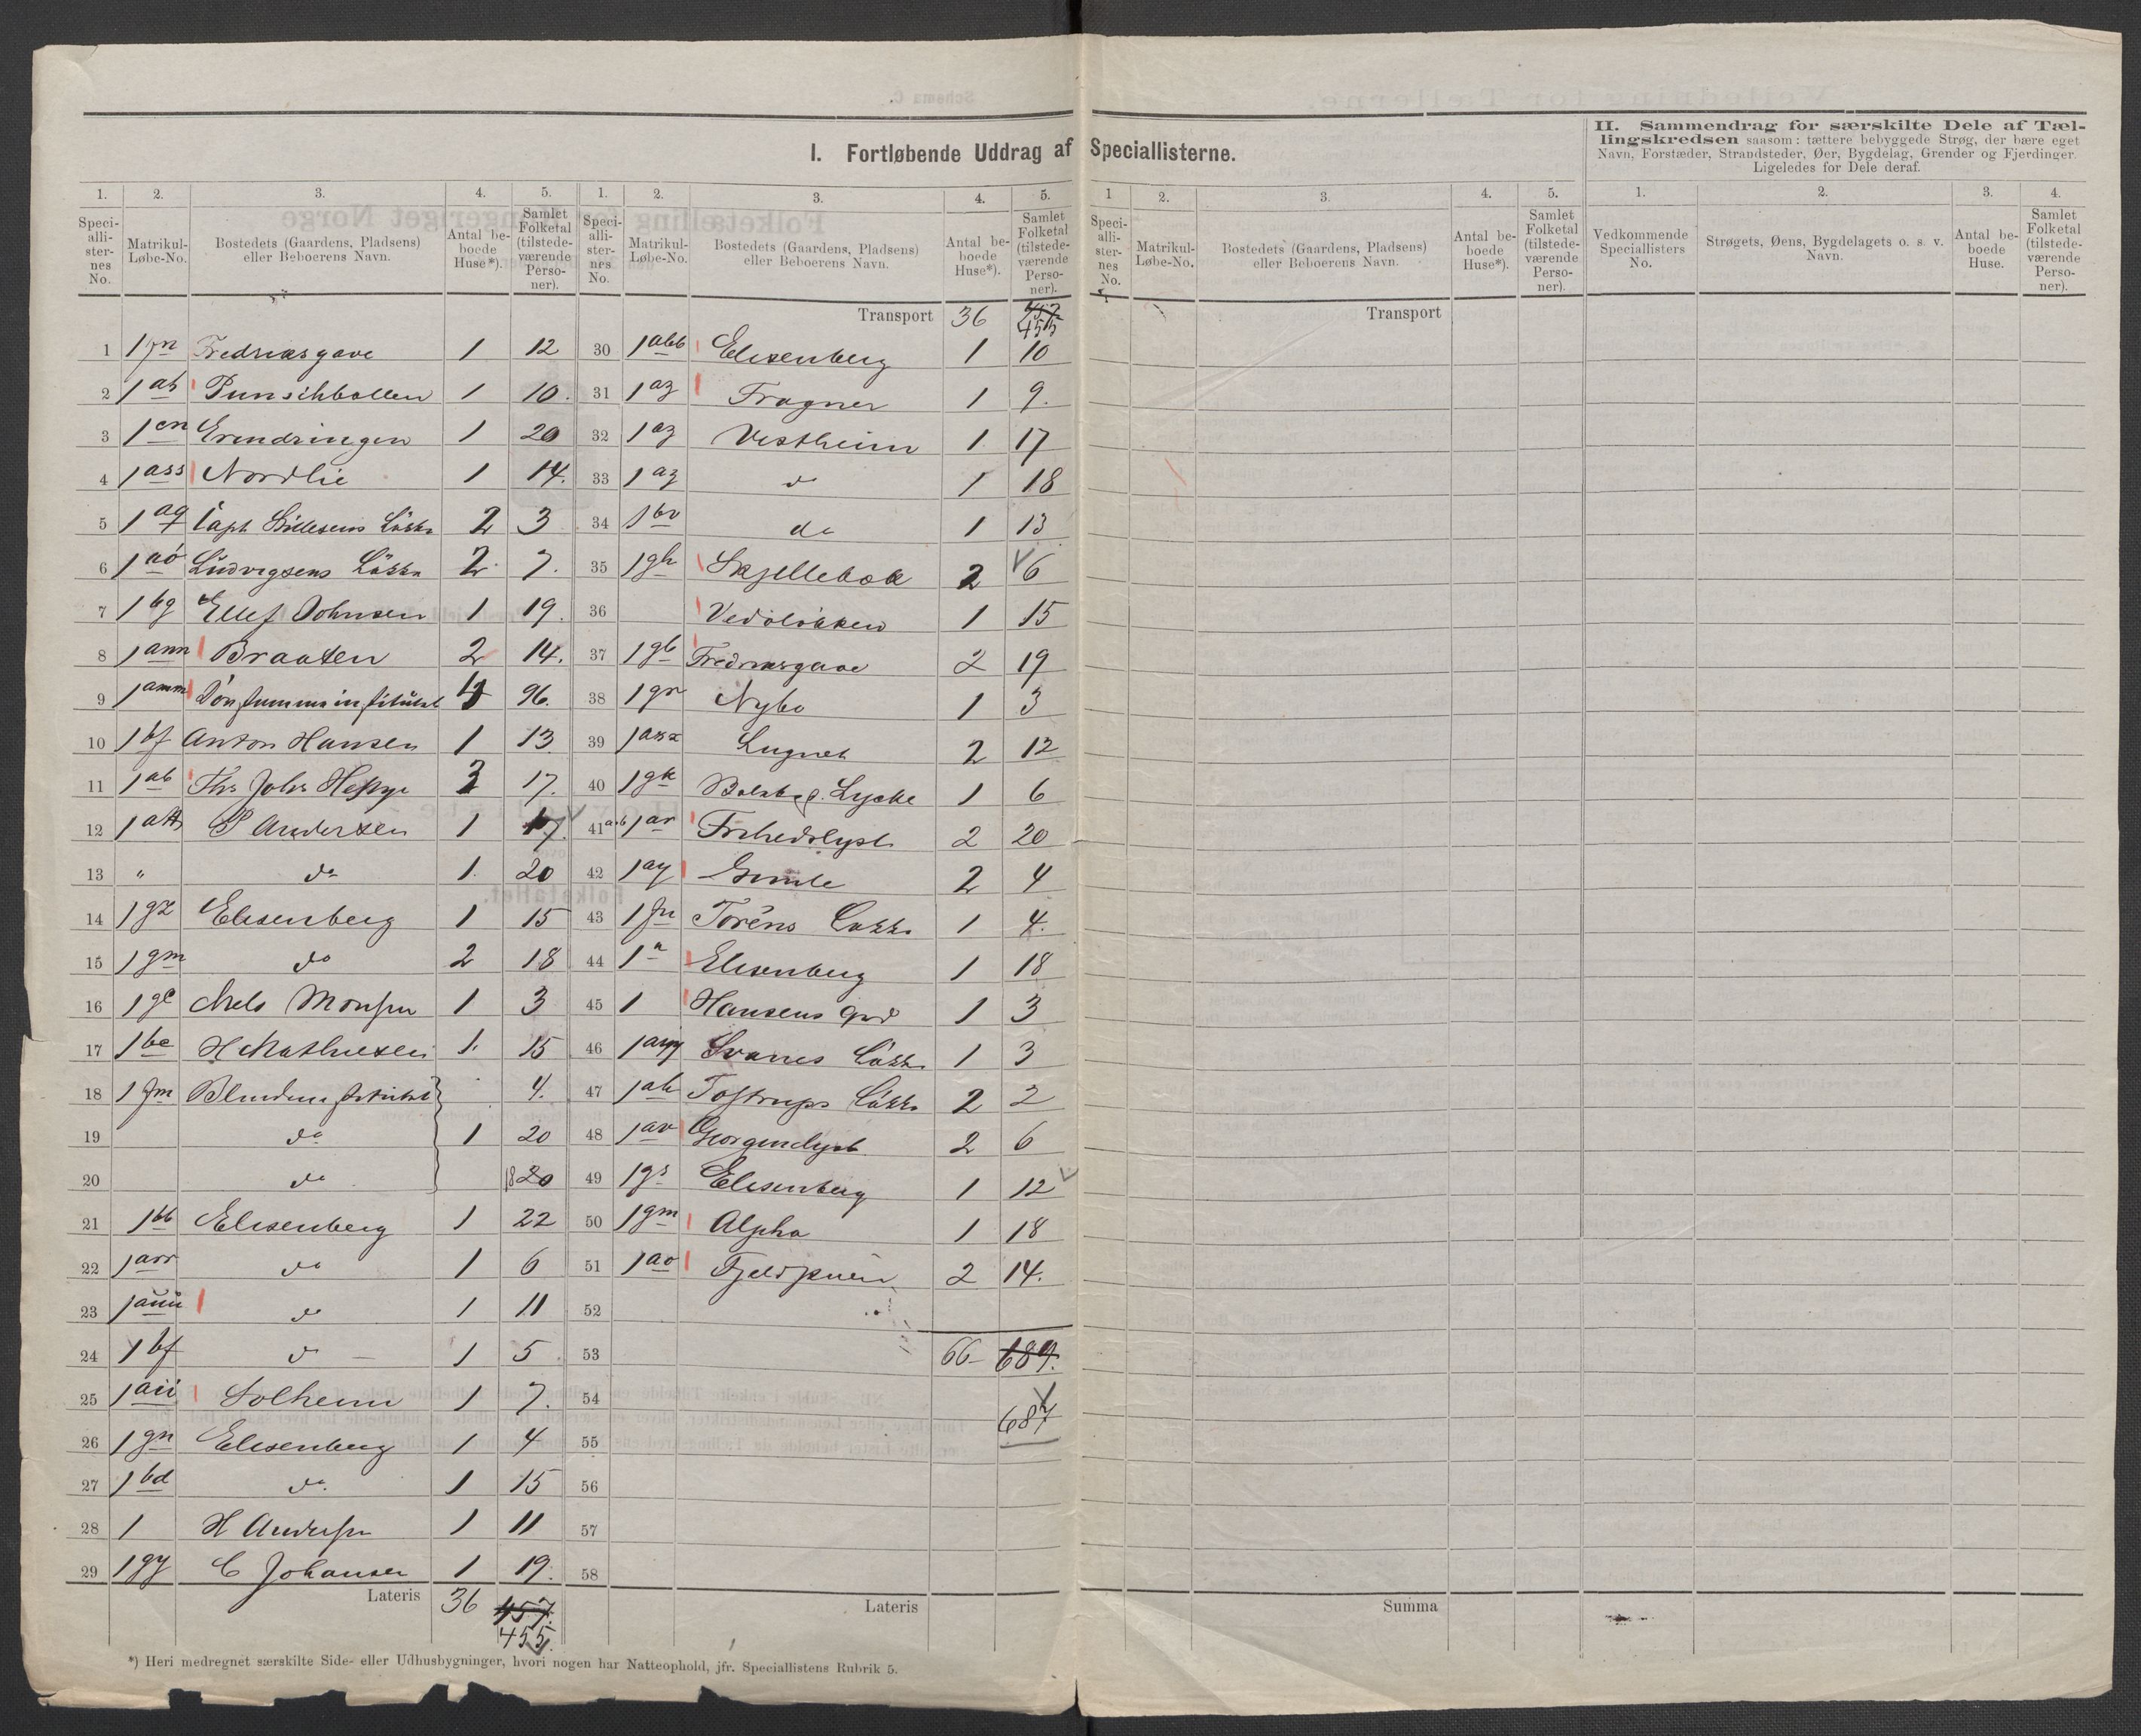 I. Fortløbende Uddrag af Speciallisterne.
II. Sammendrag for særskilte Dele af Tæl-
lingskredsen saasom: tættere bebyggede Strøg, der bære eget
Navn, Forstæder, Strandsteder, Øer, Bygdelag, Grender og Fjerdinger.
Ligeledes for Dele deraf.
1. 2. 3. 4. 5.
Speciallister- nes No. Matrikul- Løbe-No. Bostedets (Gaardens, Pladsens) eller Beboerens Navn. Antal be- boede Huse*). Samlet Folketal (tilstede- værende Perso- ner).
1 1fn Fredriksgave 1 12
2 1as Punschbollen 1 10.
3 1cn Erindringen 1 20
4 1ass Nordlie 1 14.
5 1aq Capt Sillesens Løkke 2 3
6 1aö Ludvigsens Løkke 2 7.
7 1bg Ellef Johnsen 1 19.
8 1ann Braaten 2 14.
9 1amm Døvstummeinstitutet 96.
10 1bf Anton Hansen 1 13
11 1ab Ths Johs Heftye 17.
12 1att P Andersen 1 17
13 " do 1. 20
14 1gz Elisenberg 1 15
15 1gm do 2 18
16 1gc Niels Monsen 1 3
17 1be H Mathiesen 1. 15
18 1fm Blindeinstitutet 4.
19 do 1 20
20 do 18
21 1bb Elisenberg 1 22
22 1arr do 1 6
23 1auu do 1 11
24 1bf do 1 5
25 1aii Solheim 1 7.
26 1gn Elisenberg 1 4
27 1bd do. 1 15
28 1 H Andersen 1 11
29 1gy C Johansen 1 19.
Lateris 36 457.
455.
1. 2. 3. 4. 5.
Speci- alli- ster- nes No. Matrikul- Løbe-No. Bostedets (Gaardens, Pladsens) eller Beboerens Navn. Antal be- boede Huse*). Samlet Folketal (tilstede- værende Perso- ner).
Transport 36 457
455
30 1abb Elisenberg 1 10
31 1az Frogner 1 9.
32 1az Vestheim 1. 17
33 1az do 1 18
34 1bv do 1 13
35 1gh Skjellebæk 2 6
36 Vedøløkken 1 15
37 1gb Fredriksgave 2 19
38 1gr Nybo 1 3
39 1axx Lugnet 2 12
40 1gk Lykke 1 6
41ab 1ar Frihedslyst 2 20
42 1ay Gimle 2 4
43 1fu Toréns Løkke 1 4.
44 1a Elisenberg 1 18
45 1 Hansens Grd 1 3
46 1ayy Svanes Løkke 1 3
47 1ah Tostrups Løkke 2 2
48 1av Georgenslyst 2 6
49 1gs Elisenberg 1 12
50 1gm Alpha 1 18
51 1ao 2 14.
52
53 66 689.
54 687
55
56
57
58
Lateris
1 2. 3. 4. 5.
Speci- alli- ster- nes No. Matrikul- Løbe-No. Bostedets (Gaardens, Pladsens) eller Beboerens Navn. Antal be- boede Huse*). Samlet Folketal (tilstede- værende Perso- ner).
Transport
Summa
1. 2. 3. 4.
Vedkommende Speciallisters No. Strøgets, Øens, Bygdelagets o. s. v. Navn. Antal be- boede Huse. Samlet Folketal (tilstede- værende Perso- ner).
*) Heri medregnet særskilte Side- eller Udhusbygninger, hvori nogen har Natteophold, jfr. Speciallistens Rubrik 5.